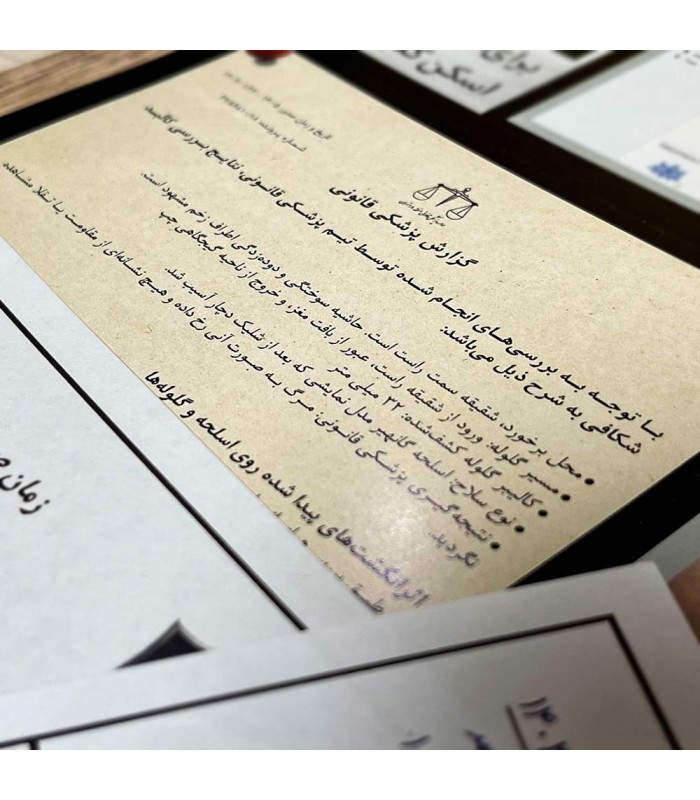 برای
اسکن ک
تاریخ و زمان
شماره پرونده
گزارش پزشکی قانونی
با توجه به بررسی‌های انجام شده توسط تیم پزشکی قانونی، نتایج بررسی کالبد
شکافی به شرح ذیل می‌باشد:
• محل برخورد، شقیقه سمت راست است. حاشیه سوختگی و دوده‌زدگی اطراف زخم مشهود است.
• مسیر گلوله: ورود از شقیقه راست، عبور از بافت مغز، و خروج از ناحیه گیجگاهی چپ
• کالیبر گلوله کشف‌شده: ۳۲ میلی متر
• نوع سلاح: اسلحه گانهیر مدل نمایشی که بعد از شلیک دچار آسیب شد.
• نتیجه‌گیری پزشکی قانونی: مرگ به صورت آنی رخ داده و هیچ نشانه‌ای از مقاومت یا تقلا مشاهده
نگردید..
اثرانگشت‌های پیدا شده روی اسلحه و گلوله‌ها
زمان